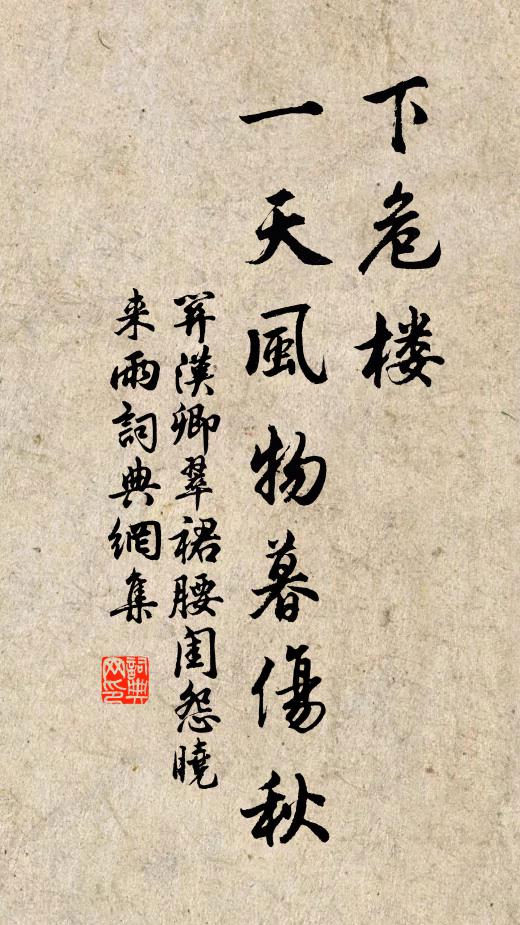 下危楼
一天風物暮傷秋
关漢卿翠裙腰闺怨曉
来雨詞典網集
詞典
网印